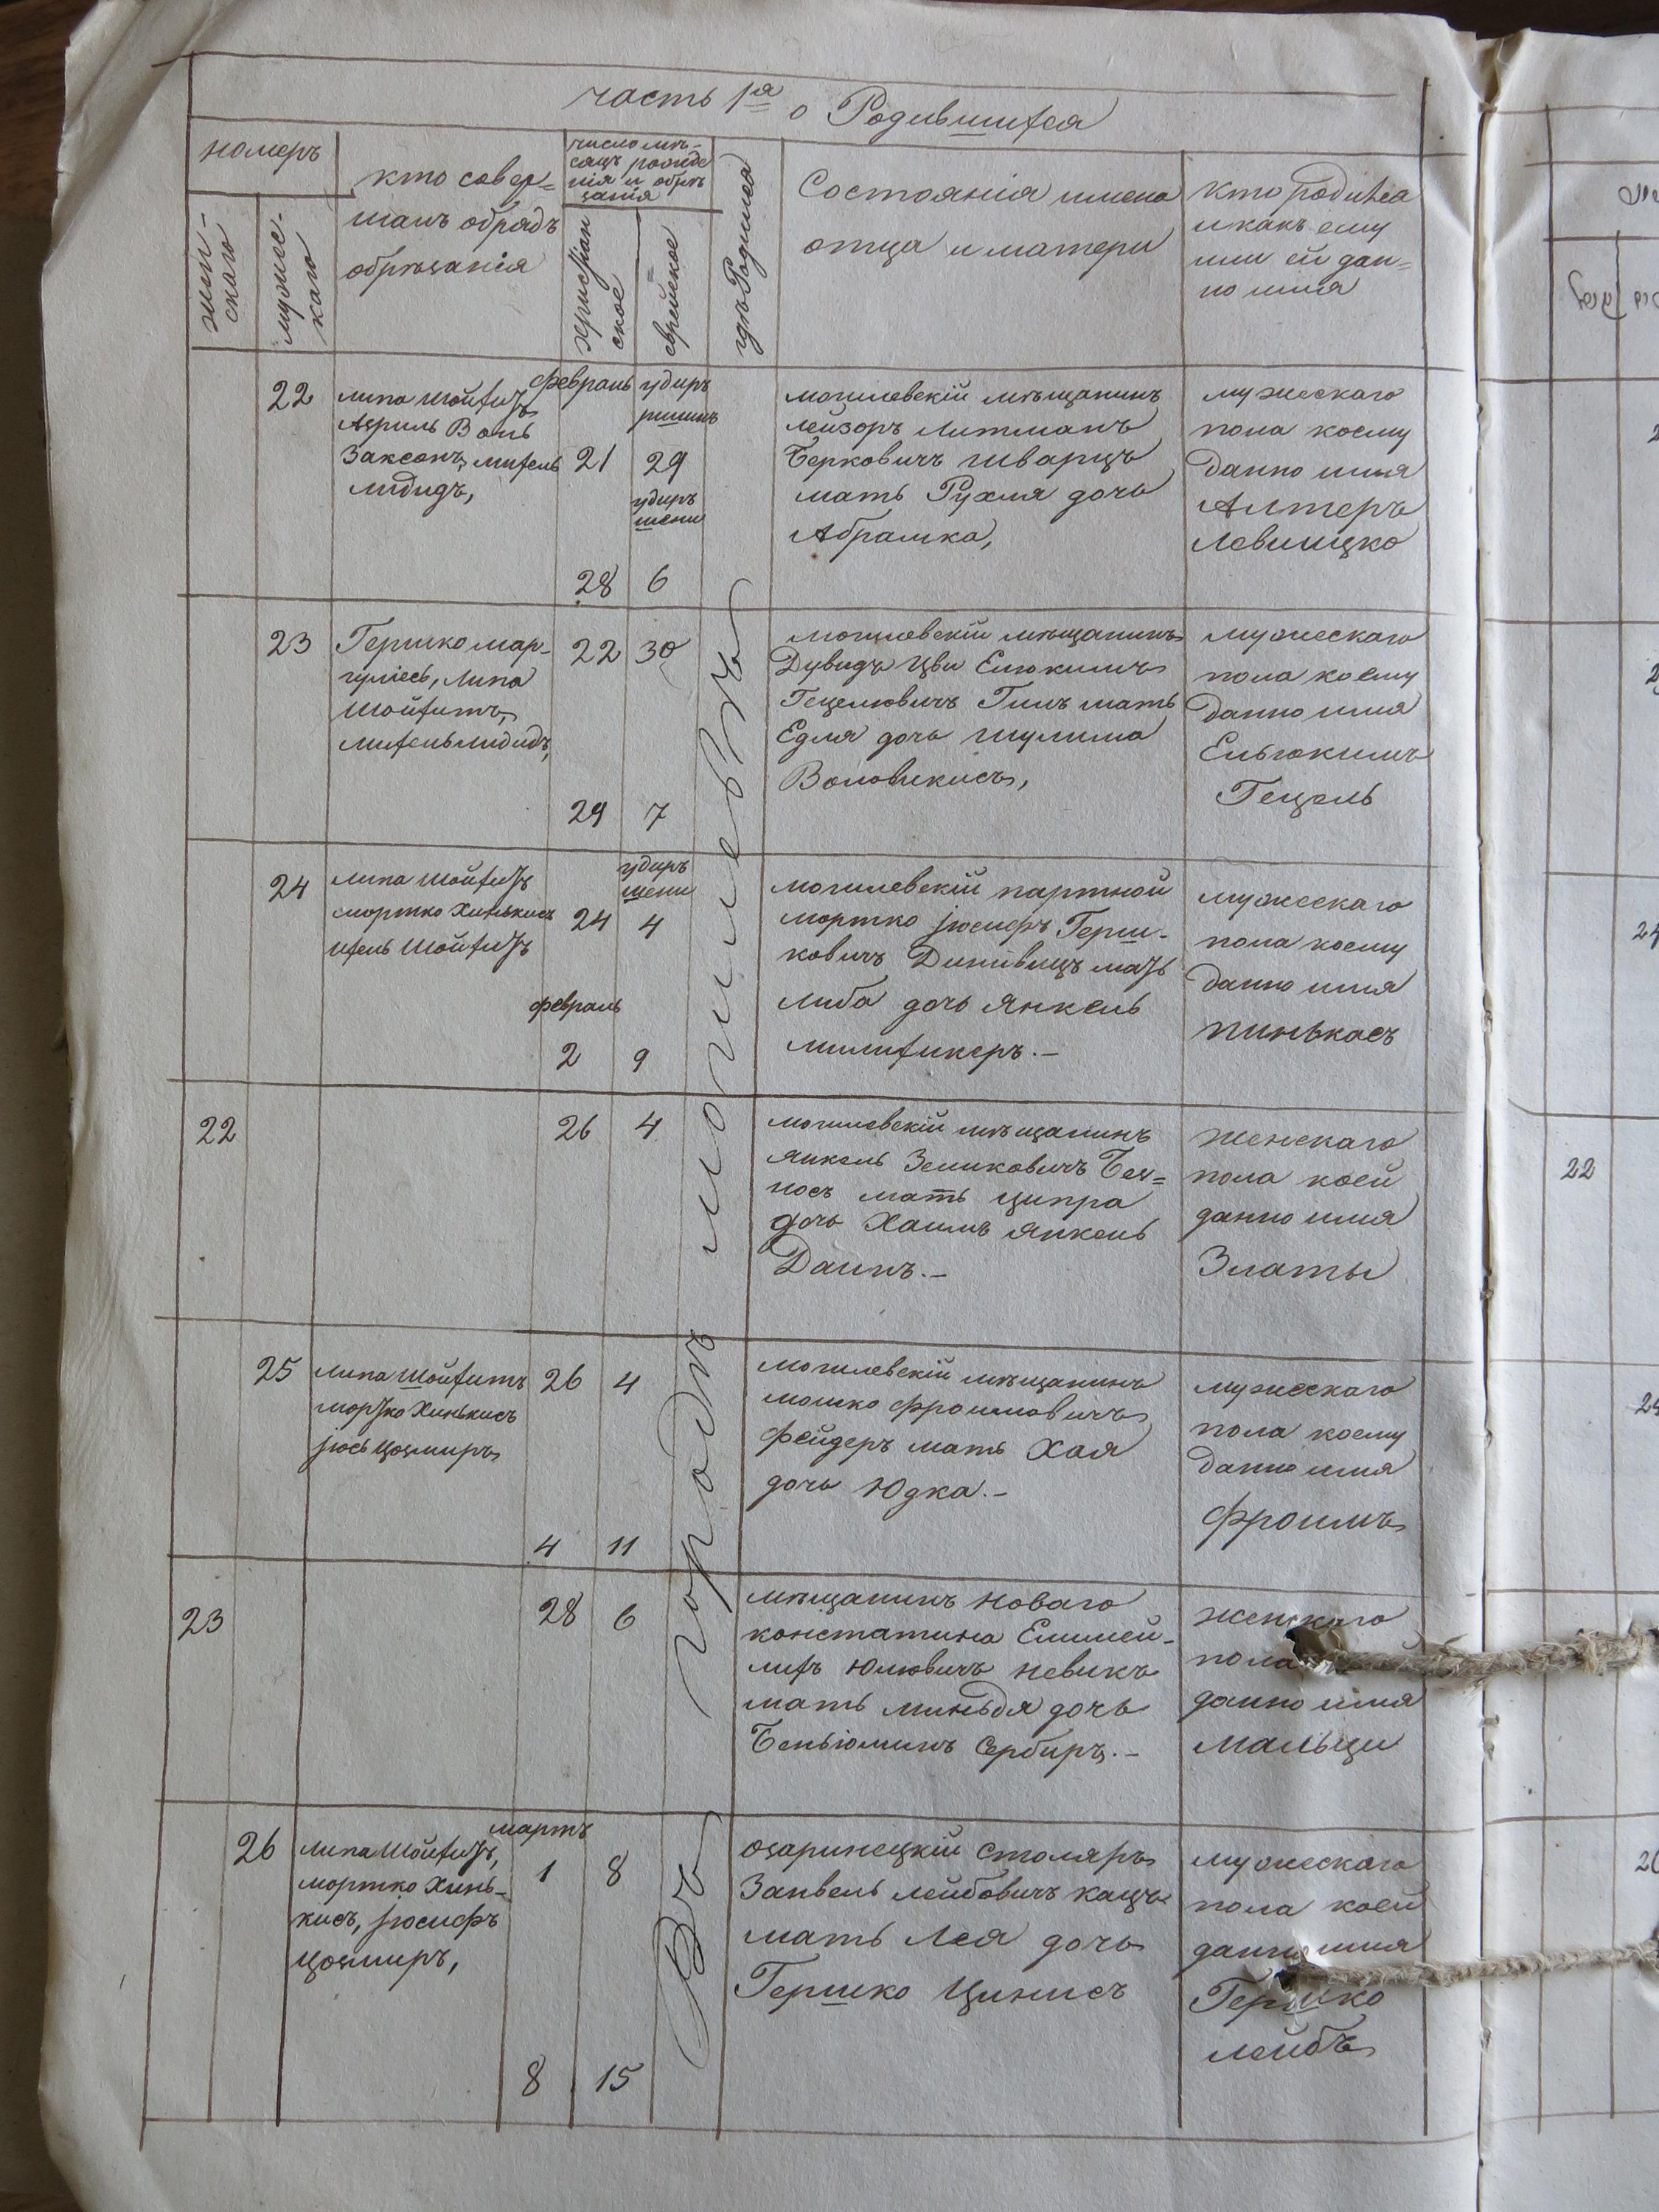 часть 1я о Родившихся
номеръ
женскаго
мужескаго
кто совер=
шалъ обрядъ
обрѣзанія
число мѣ-
сяцъ рожде
нія и обрѣ
занія
христіан
ское
еврейское
гдѣ Родился
Состоянія имена
отца и матери
кто родился
и какъ ему
или ей дан=
но имя
Въ городѣ могилевѣ
22
липа Шойхитъ
Заксонъ, михель
февраль
21
29
28
6
могилевскій мѣщанинъ
лейзоръ Литманъ
Берковичъ шварцъ
мать Рухля дочь
Абрамка,
мужескаго
пола коему
данно имя
Алтеръ
23
Гершко мар-
гуліесъ, липа
Шойхитъ,
22
30
29
7
могилевскій мѣщанинъ
Дувидъ Цви Елюкимъ
Гецелювичъ Гиль мать
Едля дочь шулима
мужескаго
пола коему
данно имя
Ельюкимъ
Гецель
24
липа Шойхитъ
мортко Хинькисъ
Шойхитъ
24
4
февраль
2
9
могилевскій партной
мортко Іюсифъ Герш-
ковичъ мать
либа дочь Янкель
мужескаго
пола коему
данно имя
пинькасъ
22
26
4
могилевскій мѣщанинъ
янкель Зелиховичъ
мать ципра
дочь Хаимъ Янкель
женскаго
пола коей
данно имя
Златы
25
липа Шойхитъ
мортко Хинькисъ
26
4
4
11
могилевскій мѣщанинъ
мошко Фроимовичъ
фейдеръ мать Хая
дочь Юдка.-
мужескаго
пола коему
данно имя
Фроимъ
23
28
6
мѣщанинъ Новаго
константина Елимей-
лихъ Юлювичъ Невикъ
мать миньдя дочь
Беньюминъ Сербиръ.-
женскаго
пола
данно имя
Мальци
26
липа Шойхитъ,
мортко Хинь-
кисъ, Іюсифъ
мартъ
1
8
8
15
озаринецкій столяръ
Запвель лейбовичъ кацъ
мать Лея дочь
Гершко Цинисъ
мужескаго
пола коей
данно имя
Гершко
лейбъ
22